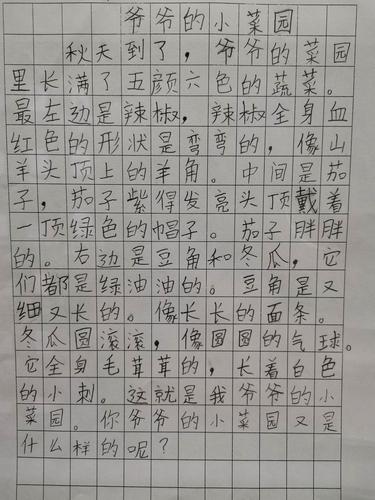 爷爷的小菜园
秋天到了，爷爷的菜园
里长满了五颜六色的蔬菜。
最左边是辣椒，辣椒全身血
红色的形状是弯弯的，像山
羊头顶上的羊角。中间是茄
子，茄子紫得发亮头顶戴着
一顶绿色的帽子。茄子胖胖
的。右边是豆角和冬瓜，它
们都是绿油油的。豆角是又
细又长的。像长长的面条。
冬瓜圆滚滚，像圆圆的气球。
它全身毛茸茸的，长着白色
的小刺。这就是我爷爷的小
菜园。你爷爷的小菜园又是
什么样的呢？